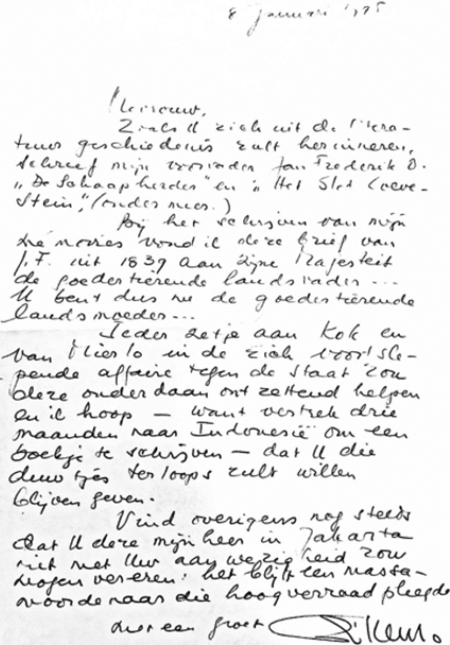 8 Januari 1995
Mevrouw,
Zoals U zich uit de litera-
tuur geschiedenis zult herinneren,
schreef mijn voorvader Jan Frederik O.
„De Schaapherder" en „Het Slot Loeve-
stein", (onder meer.)
Bij het schrijven van mijn
Memoires vond ik deze brief van
J.F. uit 1839 aan Zijne Majesteit
de goedertierende landsvader...
U bent dus nu de goedertierende
landsmoeder...
Ieder zetje aan Kok en
van Mierlo in de zich voortsle-
pende affaire tegen de Staat zou
deze onderdaan ontzettend helpen
en ik hoop — want vertrek drie
maanden naar Indonesië om een
boekje te schrijven — dat U die
duwtjes terloops zult willen
blijven geven.
Vind overigens nog steeds
dat U deze mijnheer in Jakarta
niet met Uw aanwezigheid zou
mogen vereren: het blijft een massa-
moordenaar die hoogverraad pleegde
met een groet